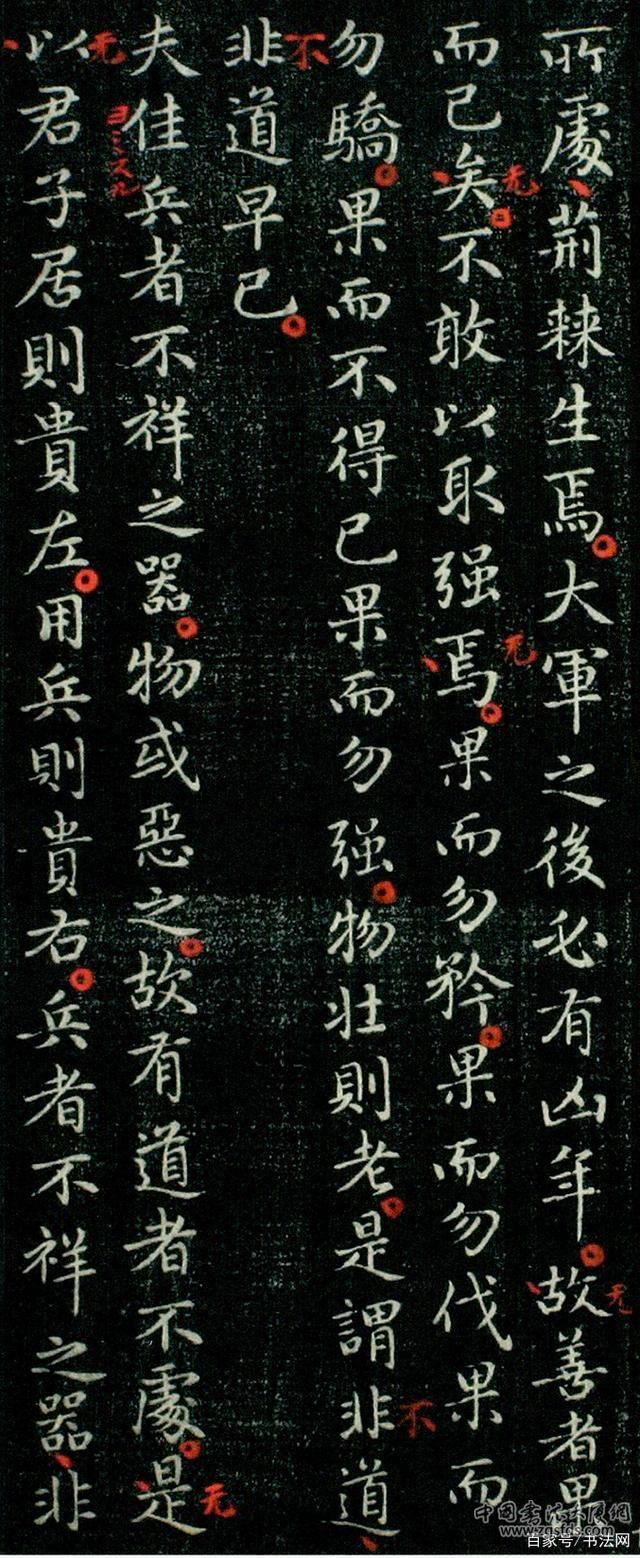 所處荆棘生焉大軍之後必有凶年故善者果
无
而已矣不敢以取强焉果而勿矜果而勿伐果而
无
无
勿驕果而不得已果而勿强物壯則老是謂非道
不
非道早已
不
夫佳兵者不祥之器物或惡之故有道者不處是
无
以君子居則貴左用兵則貴右兵者不祥之器非
无
百家号/书法网